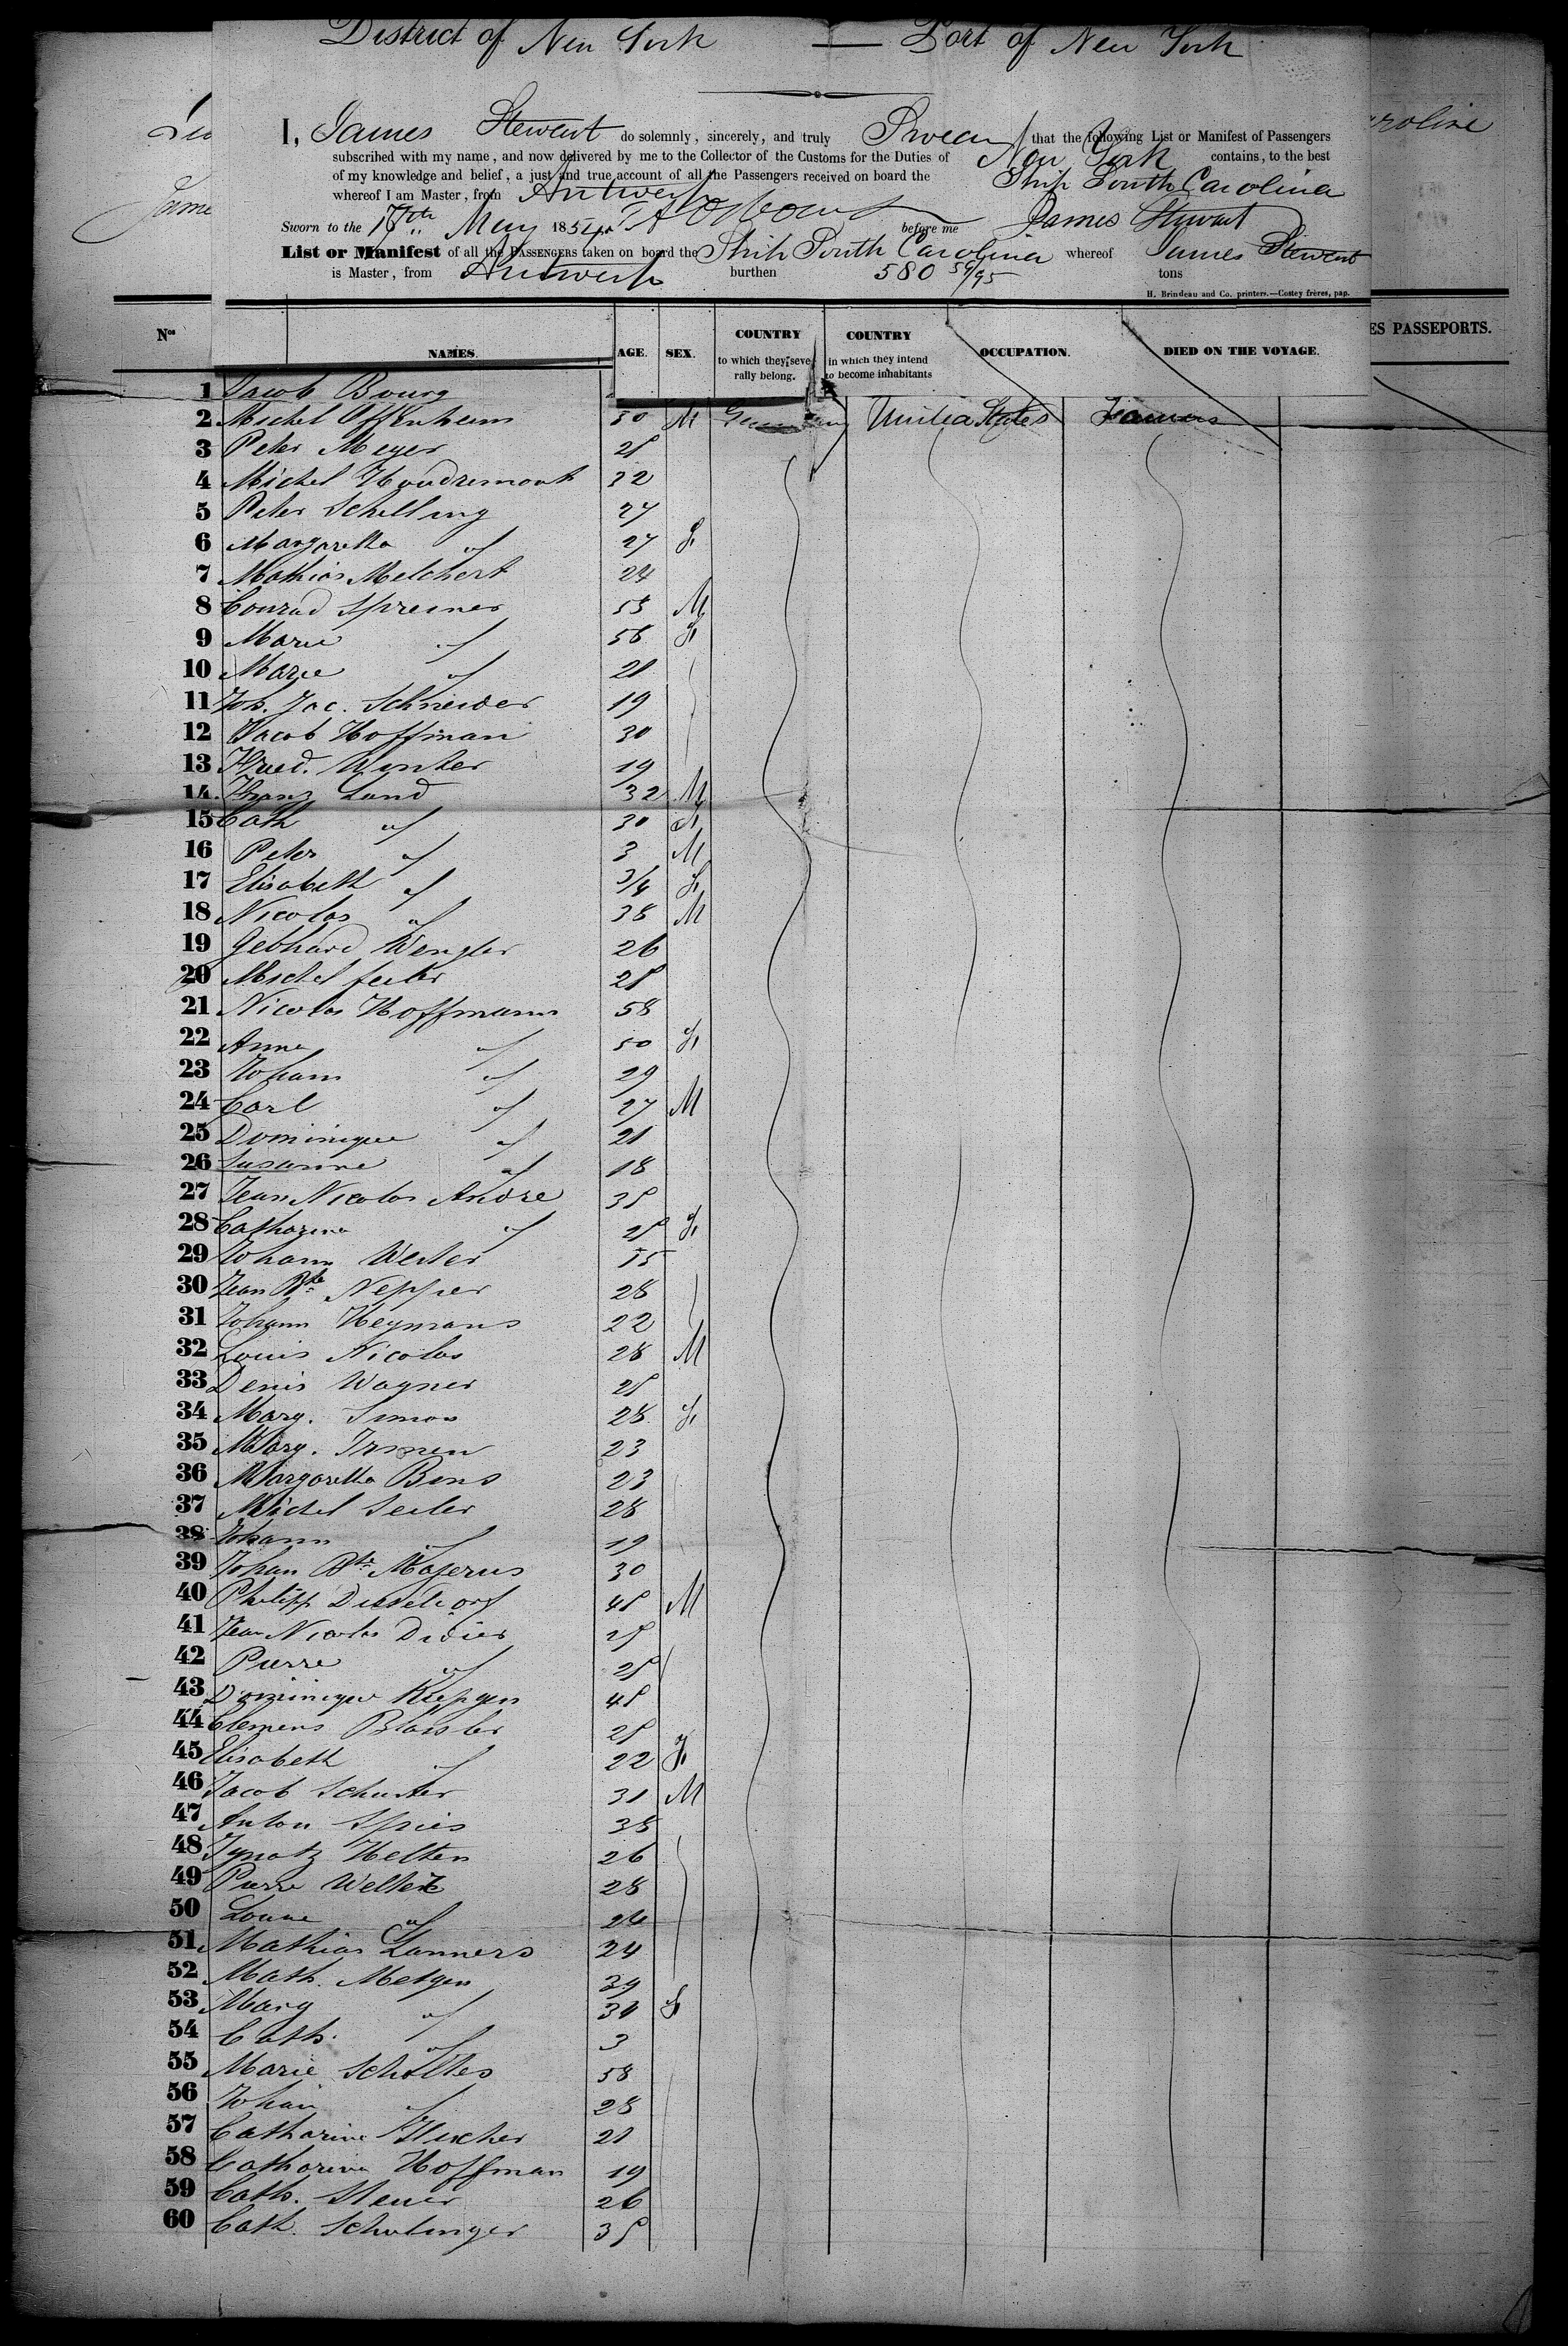 District of New York — Port of New York
I, James Stewart do solemnly, sincerely, and truly Swear that the following List or Manifest of Passengers
subscribed with my name, and now delivered by me to the Collector of the Customs for the Duties of New York contains, to the best
of my knowledge and belief, a just and true account of all the Passengers received on board the Ship South Carolina
whereof I am Master, from Antwerp
Sworn to the 17th May 1854 before me James Stewart
List or Manifest of all the PASSENGERS taken on board the Ship South Carolina whereof James Stewart
is Master, from Antwerp burthen 580 59/95 tons
H. Brindeau and Co. printers.—Costey frères, pap.
Jame
roline
ES PASSEPORTS.
Nos NAMES. AGE. SEX. COUNTRY to which they severally belong. COUNTRY in which they intend to become inhabitants OCCUPATION. DIED ON THE VOYAGE.
1 Jacob Bourg
2 Michel Offenheim 50 M Germany United States Farmers
3 Peter Meyer 25
4 Michel Houdremont 32
5 Peter Schelling 27
6 Margaretha " 27 F
7 Mathias Melchert 24
8 Conrad Spreiner 55 M
9 Marie " 56 F
10 Marie " 21
11 Joh. Jac. Schneider 19
12 Jacob Hoffman 30
13 Fried. Winter 19
14 Franz Lund 32 M
15 Cath " 30 F
16 Peter " 3 M
17 Elisabeth " 3/4 F
18 Nicolas " 38 M
19 Gebhard Wengler 26
20 Michel 25
21 Nicolas Hoffmann 58
22 Anna " 50 F
23 Johann " 29
24 Carl " 27 M
25 Dominique " 21
26 Susanne " 18
27 Jean Nicolas Andre 35
28 Catharina " 25 F
29 Johann Wester 15
30 Jean Bte Nepper 28
31 Johann Heymans 22
32 Louis Nicolas 28 M
33 Denis Wagner 25
34 Marg. Simon 28 F
35 Marg. Irmen 23
36 Margaretha Bens 23
37 Michel Seiler 28
38 Johann " 19
39 Johan Bte Majerus 30
40 Philipp Dusseldorf 45 M
41 Jean Nicolas Didier 25
42 Pierre " 25
43 Dominique Kiepgen 45
44 Clemens Blaisler 25
45 Elisabeth " 22 F
46 Jacob Schuster 31 M
47 Anton Spies 38
48 Ignatz Helten 26
49 Pierre Welter 28
50 Louise " 24
51 Mathias Lanners 24
52 Math. Metzen 39
53 Marg " 30 F
54 Cath. " 3
55 Marie Scholtes 58
56 Johan " 28
57 Catharine Fischer 21
58 Catharina Hoffman 19
59 Cath. Steuer 26
60 Cath. Schulinger 35